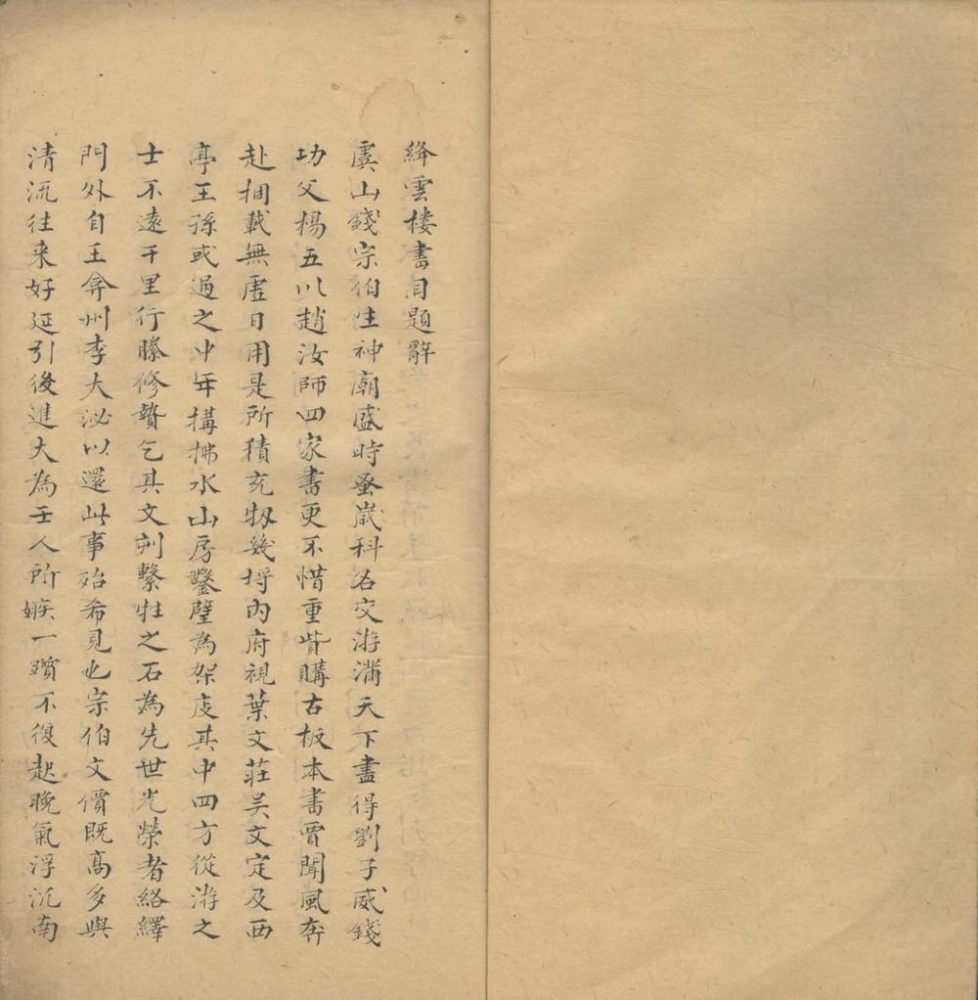 絳雲楼書目題辭
虞山錢宗伯生神廟盛時蚤歲科名交游滿天下盡得劉子威錢
功父楊五以趙汝師四家書更不惜重貲購古板本書賈聞風奔
赴捆載無虛日用是所積充牣幾埒內府視葉文莊吳文定及西
亭王孫或過之中年構拂水山房鑿壁為架庋其中四方從游之
士不遠千里行縢修贄乞其文刻繫牲之石為先世光榮者絡繹
門外自王弇州李大泌以還此事殆希見也宗伯文價既高多與
清流往来好延引後進大為壬人所嫉一躓不復起晚氣浮沉南